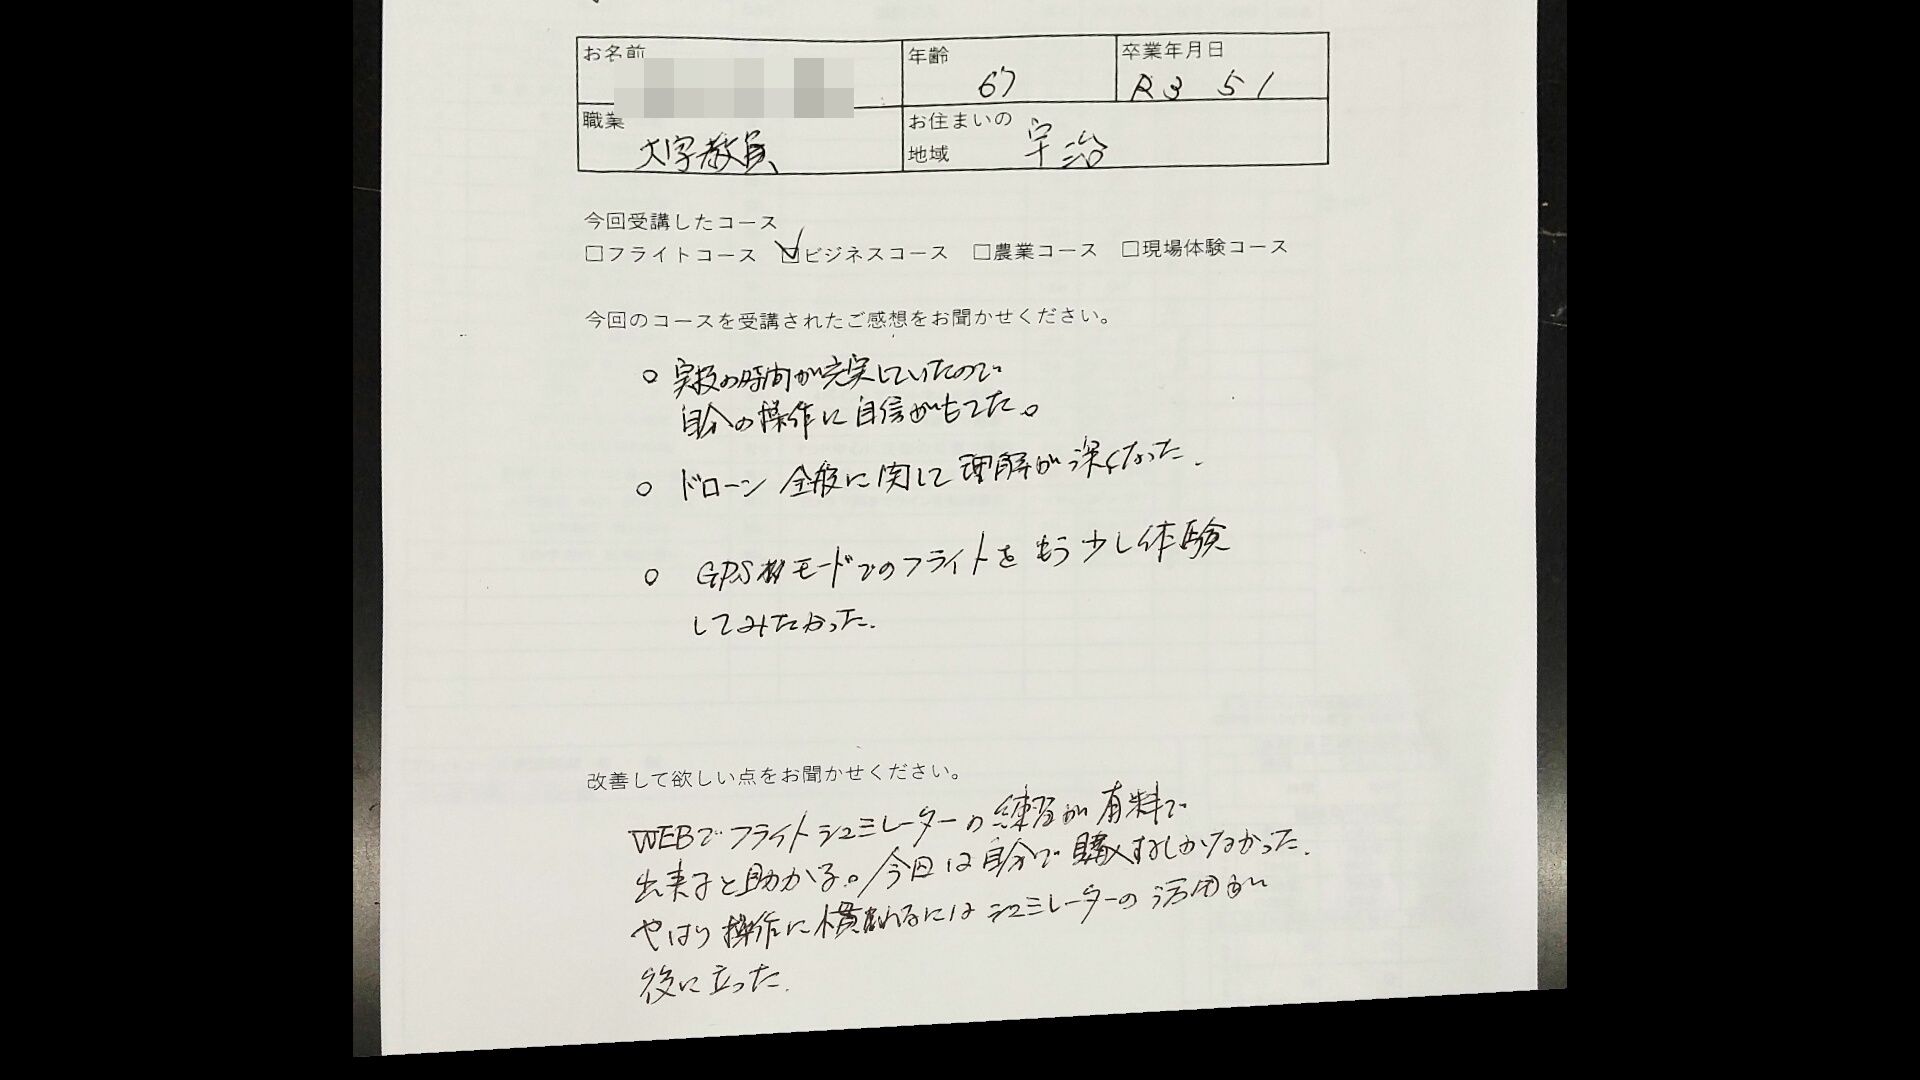 お名前
年齢
67
卒業年月日
R3 5 1
職業
大学教員
お住まいの
地域
宇治
今回受講したコース
□フライトコース ☑ビジネスコース □農業コース □現場体験コース
今回のコースを受講されたご感想をお聞かせください。
○ 実技の時間が充実していたので
自分の操作に自信がもてた。
○ ドローン全般に関して理解が深くなった.
○ GPSモードでのフライトをもう少し体験
してみたかった.
改善して欲しい点をお聞かせください。
WEBでフライトシュミレーターの練習が有料で
出来ると助かる。今回は自分で購入するしかなかった.
やはり操作に慣れるにはシュミレーターの活用が
役に立った.